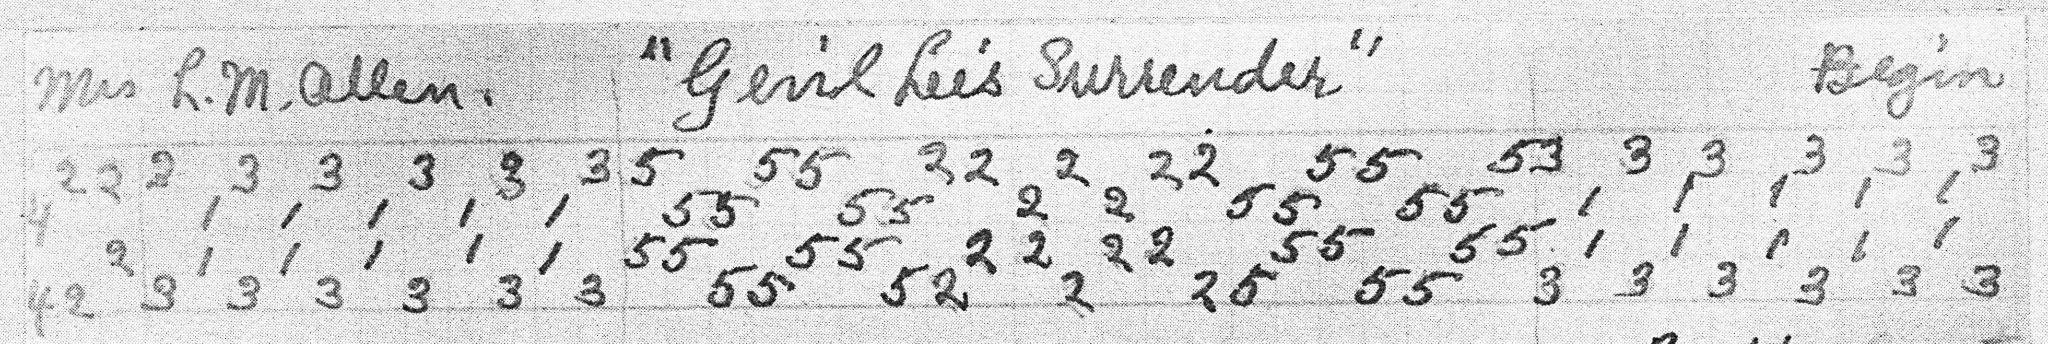 Mrs L. M. Allen. "Gen'l Lee's Surrender" Begin
2 2 2 3 3 3 3 3 5 5 5 2 2 2 2 2 5 5 5 3 3 3 3 3 3
4 1 1 1 1 1 5 5 5 5 2 2 5 5 5 5 1 1 1 1 1
2 1 1 1 1 1 5 5 5 5 2 2 2 2 5 5 5 5 1 1 1 1 1
4 2 3 3 3 3 3 3 5 5 5 2 2 2 5 5 5 3 3 3 3 3 3